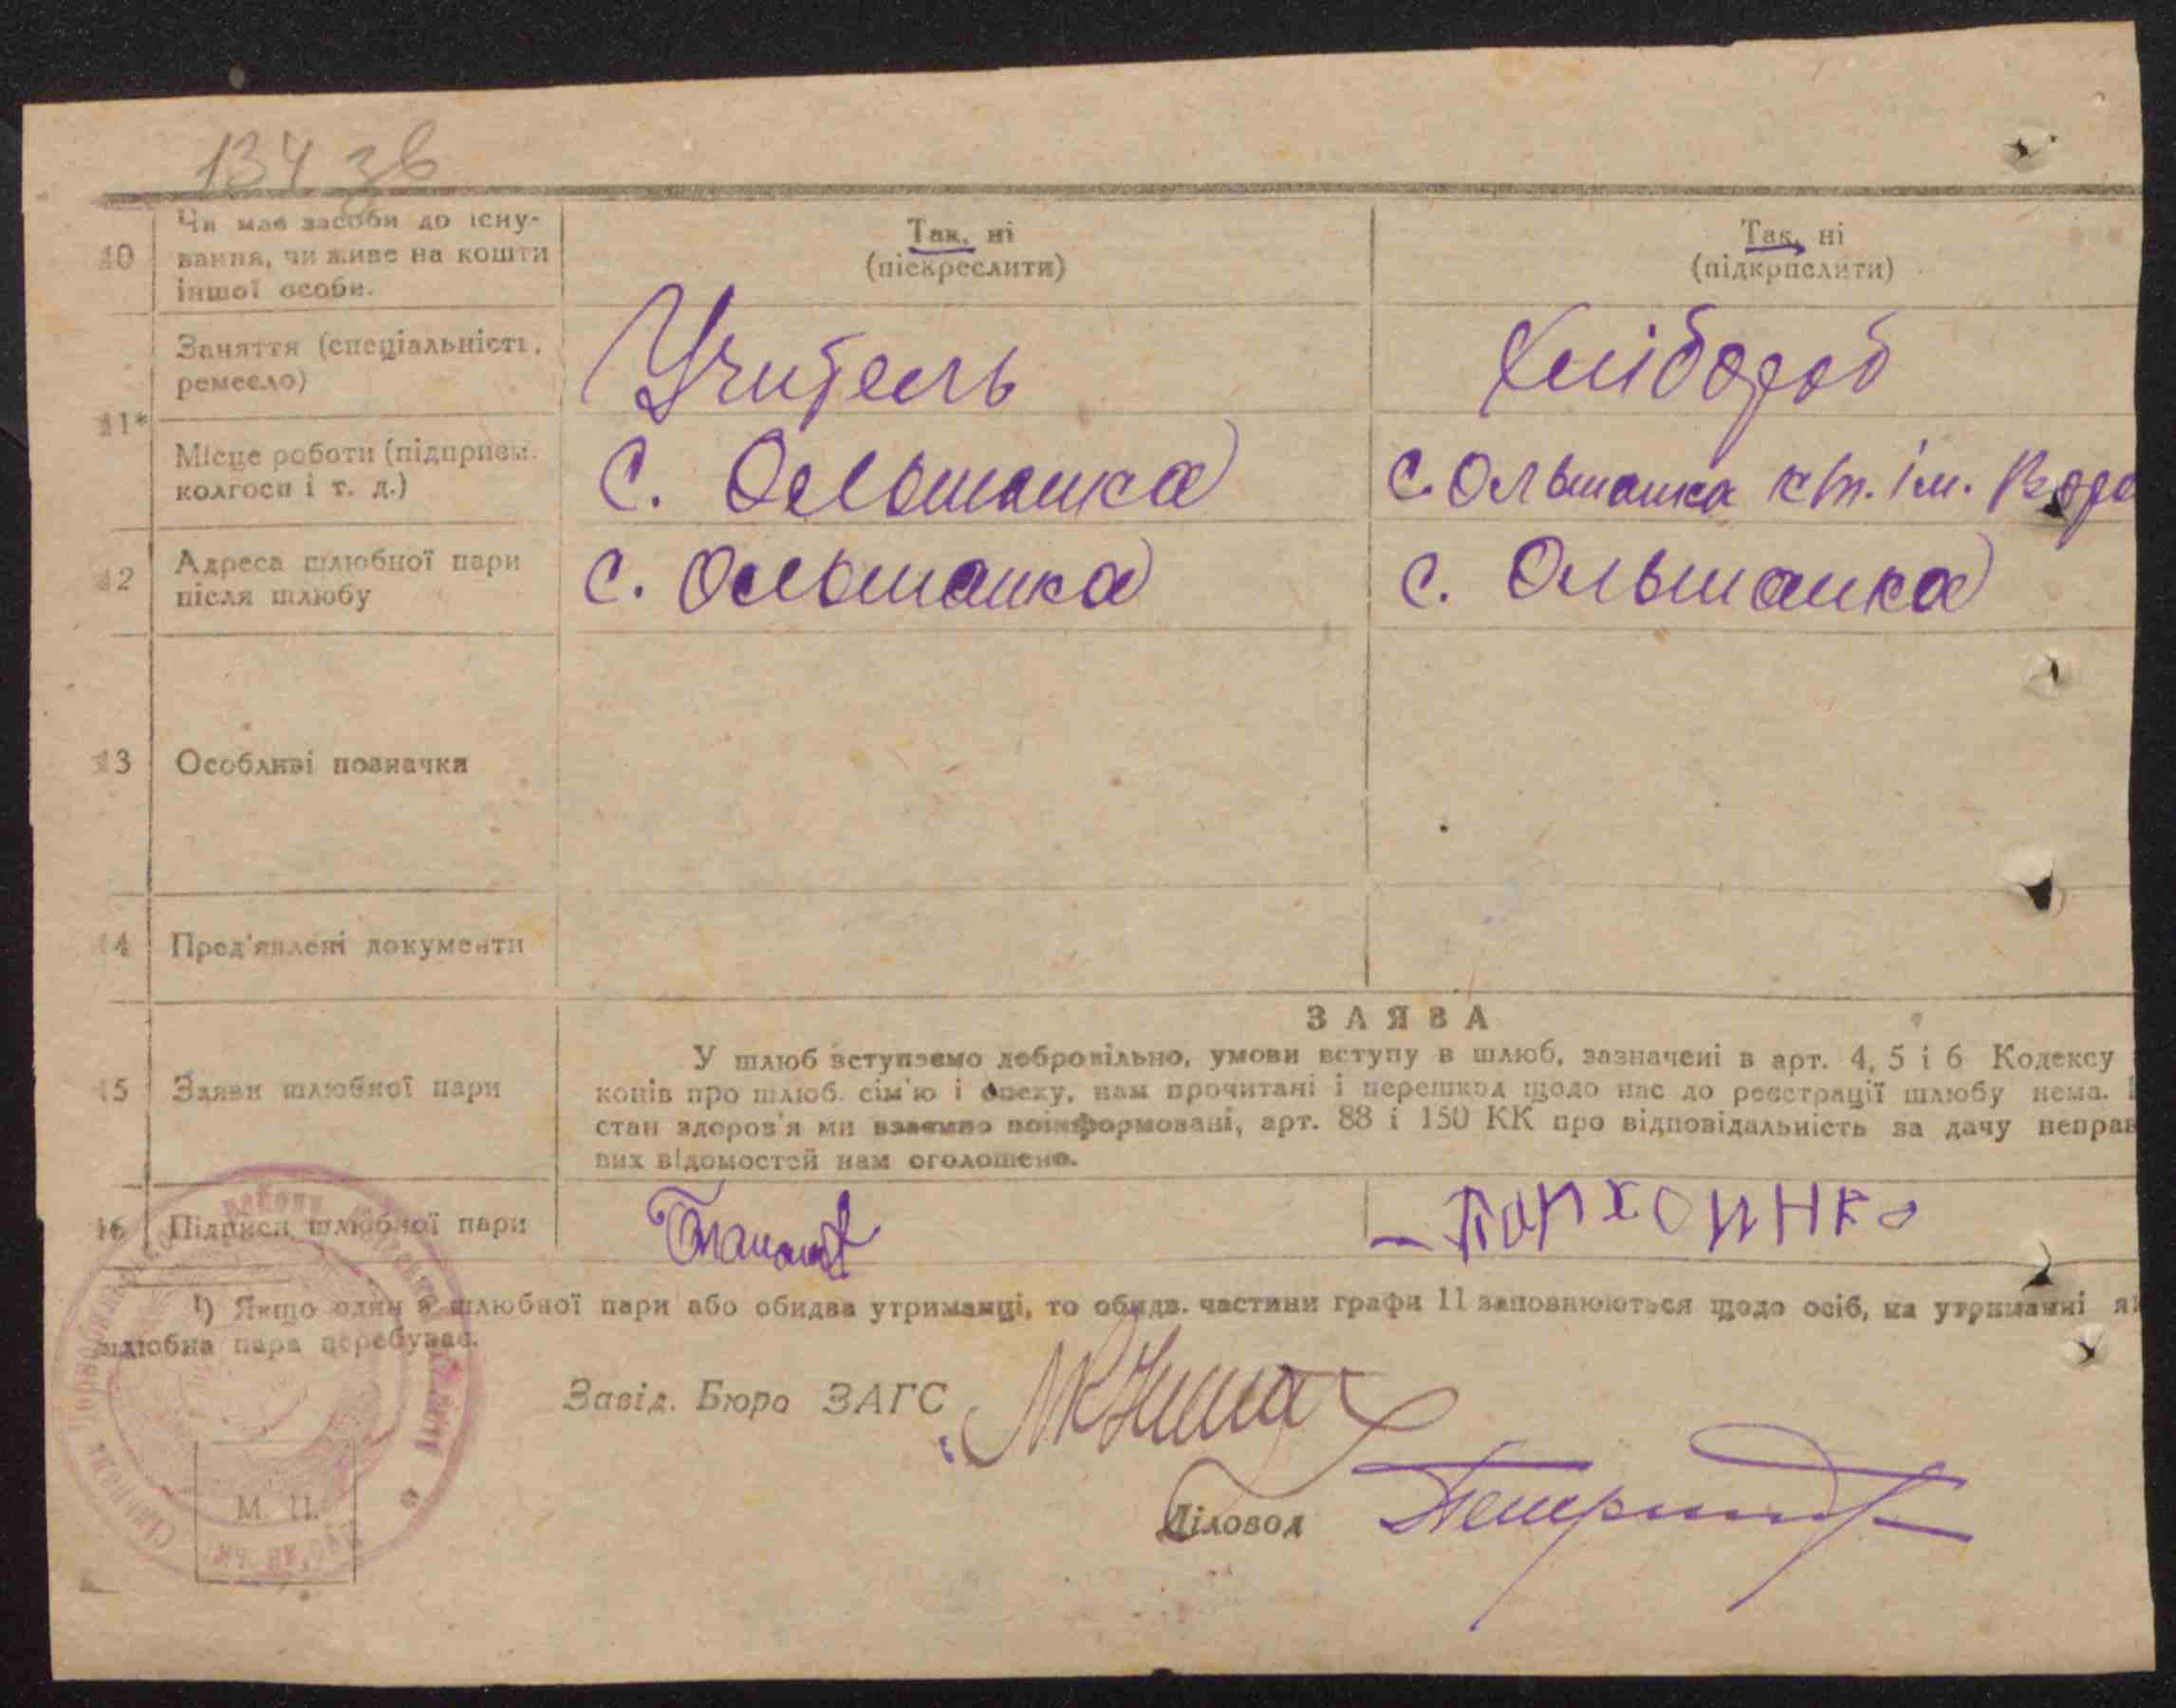 134 зв
10 Чи має засоби до існу- Так, ні Так, ні
вання, чи живе на кошти (піскреслити) (підкрпслити)
іншої особи.
Заняття (спеціальність, Учитель Хлібороб
ремесло)
11*
Місце роботи (підприєм. с. Ольшанка с. Ольшанка к/г. ім.
колгосп і т. д.)
12 Адреса шлюбної пари с. Ольшанка с. Ольшанка
після шлюбу
13 Особливі позначки
14 Пред'явлені документи
ЗАЯВА
У шлюб вступаємо добровільно, умови вступу в шлюб, зазначені в арт. 4, 5 і 6 Кодексу
15 Заяви шлюбної пари конів про шлюб. сім'ю і опеку, нам прочитані і перешкод щодо нас до реєстрації шлюбу нема.
стан здоров'я ми взаємно поінформовані, арт. 88 і 150 КК про відповідальність за дачу неправ
вих відомостей нам оголошено.
16 Підписи шлюбної пари
¹) Якщо один з шлюбної пари або обидва утриманці, то обидв. частини графи 11 заповнюються щодо осіб, на утриманні як
шлюбна пара перебуває.
Завід. Бюро ЗАГС
Діловод
М. П.